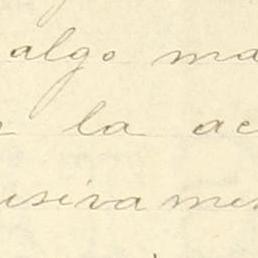 algo ma
la ac
usivamen